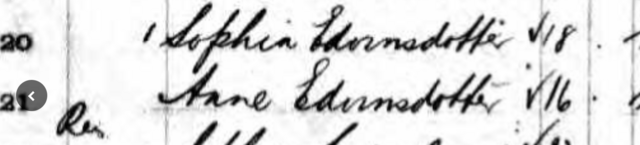 20 1 Sophia Edvinsdotter √18
21 Anne Edvinsdotter √16